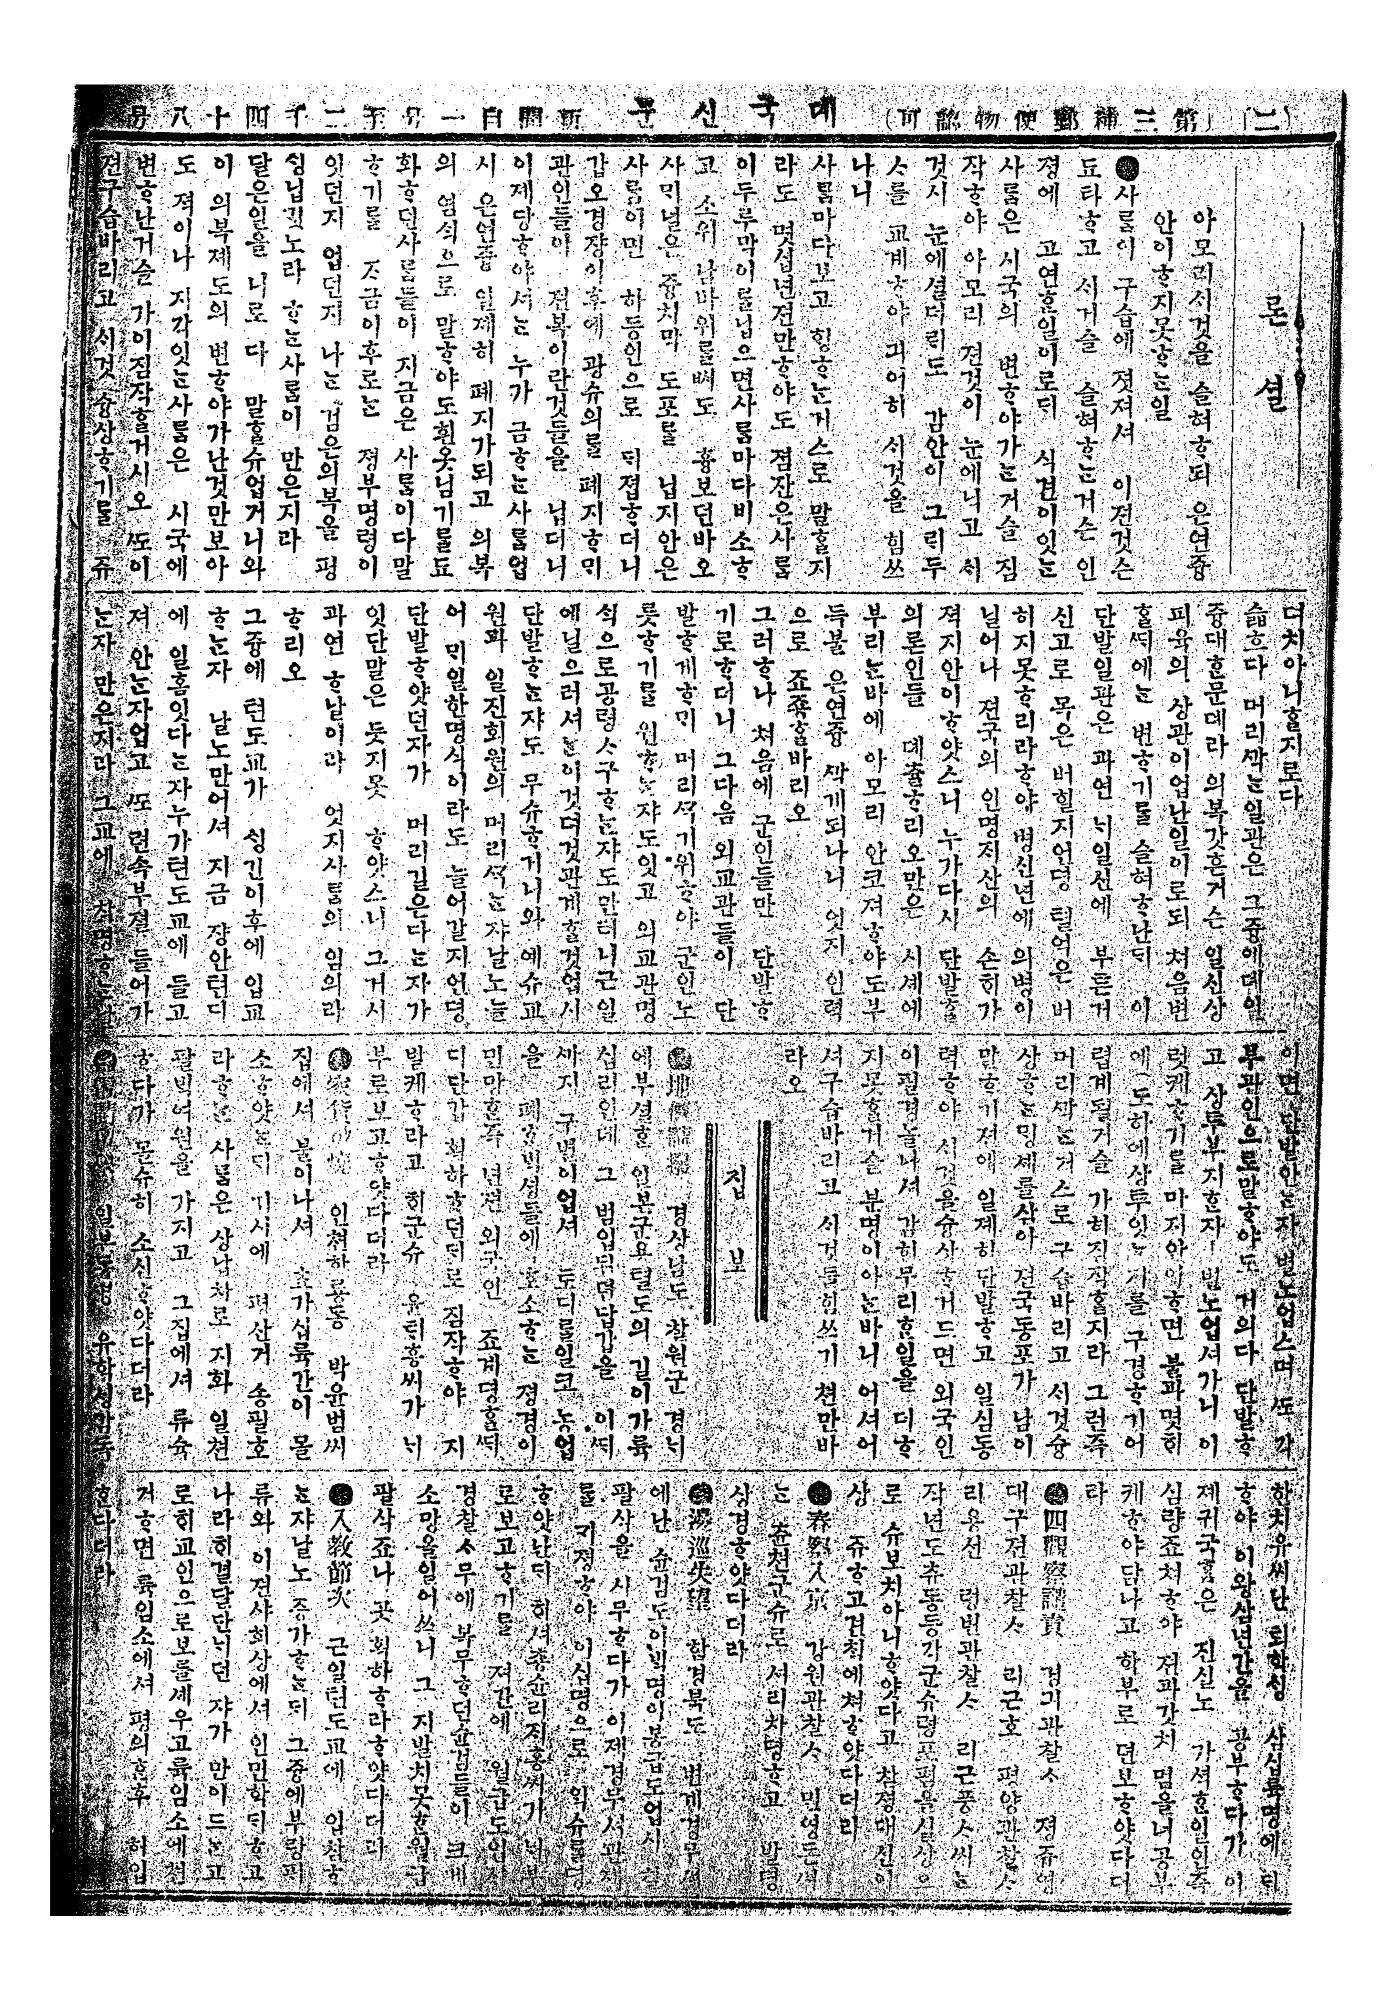 (二) (第三種郵便物認可) 뎨국신문
론셜
아모리 시것을 슬혀ᄒᆞ되 은연즁
안이ᄒᆞ지못ᄒᆞᄂᆞᆫ일
●사ᄅᆞᆷ이 구습에 졋져셔 이젼것슨
됴타ᄒᆞ고 시거슬 슬혀ᄒᆞᄂᆞᆫ거슨 인
졍에 고연ᄒᆞᆫ일이로ᄃᆡ 식견이잇ᄂᆞᆫ
사ᄅᆞᆷ은 시국의 변ᄒᆞ야가ᄂᆞᆫ거슬 짐
작ᄒᆞ야 아모리 젼것이 눈에니고 시
것시 눈에셜더ᄅᆡ도 감안이 그ᄅᆡ두
나니
사ᄅᆞᆷ마다보고 ᄒᆡᆼᄒᆞᄂᆞᆫ거스로 말ᄒᆞᆯ지
라도 몃십년젼만ᄒᆞ야도 졈잔은사ᄅᆞᆷ
이두루막이를닙으면사ᄅᆞᆷ마다비소ᄒᆞ
고 소위 남바위를ᄡᅥ도 흉보던바오
사ᄆᆡ널은 즁치막 도포를 닙지안은
사ᄅᆞᆷ이면 하등인으로 ᄃᆡ졉ᄒᆞ더니
갑오경쟝이후에 광슈의를 폐지ᄒᆞᄆᆡ
관인들이 젼복이란것들을 닙더니
이졔당ᄒᆞ야셔ᄂᆞᆫ 누가 금ᄒᆞᄂᆞᆫ사ᄅᆞᆷ업
시 은연즁 일졔히 폐지가되고 의복
의 염ᄉᆡᆨ으로 말ᄒᆞ야도흰옷닙기를됴
화ᄒᆞ던사ᄅᆞᆷ들이 지금은 사ᄅᆞᆷ이다말
ᄒᆞ기를 지금이후로ᄂᆞᆫ 졍부명령이
잇던지 업던지 나ᄂᆞᆫ 검은의복을 평
ᄉᆡᆼ닙깃노라 ᄒᆞᄂᆞᆫ사ᄅᆞᆷ이 만은지라
달은일을 니로다 말ᄒᆞᆯ슈업거니와
이 의복졔도의 변ᄒᆞ야가난것만보아
도 젹이나 지각잇ᄂᆞᆫ사ᄅᆞᆷ은 시국에
변ᄒᆞ난거슬 가이짐작ᄒᆞᆯ거시오 ᄯᅩ이
젼구습바리고 시것 슝상ᄒᆞ기를 쥬
뎌치아니ᄒᆞᆯ지로다
슯흐다 머리ᄭᅡᆨᄂᆞᆫ일관은 그즁에뎨일
즁대ᄒᆞᆫ문뎨라 의복갓흔거슨 일신상
피육의 상관이업난일이로되 처음변
ᄒᆞᆯᄯᅢ에ᄂᆞᆫ 변ᄒᆞ기를 슬혀ᄒᆞ난ᄃᆡ 이
단발일관은 과연 ᄂᆡ일신에 부튼거
신고로 목은 버힐지언뎡 털억은 버
히지못ᄒᆞ리라ᄒᆞ야 병신년에 의병이
닐어나 젼국의 인명ᄌᆡ산의 손ᄒᆡ가
젹지안이ᄒᆞ얏스니 누가다시 단발ᄒᆞᆯ
의론인들 뎨츌ᄒᆞ리오만은 시셰에
부리ᄂᆞᆫ바에 아모리 안코져ᄒᆞ야도부
득불 은연즁 ᄭᅡᆨ게되나니 엇지 인력
으로 죠죵ᄒᆞᆯ바리오
그러ᄒᆞ나 처음에 군인들만 단발ᄒᆞ
기로ᄒᆞ더니 그다음 외교관들이 단
발ᄒᆞ게ᄒᆞᄆᆡ 머리ᄭᅡᆨ기위ᄒᆞ야 군인노
릇ᄒᆞ기를 원ᄒᆞᄂᆞᆫ쟈도잇고 외교관명
ᄉᆡᆨ으로공령ᄉᆞ구ᄒᆞᄂᆞᆫ쟈도만터니근일
에닐으러셔ᄂᆞᆫ이것뎌것관계ᄒᆞᆯ것업시
단발ᄒᆞᄂᆞᆫ쟈도 무슈ᄒᆞ거니와 예슈교
원과 일진회원의 머리ᄭᅡᆨᄂᆞᆫ쟈날노늘
어 ᄆᆡ일한명식이라도 늘어갈지언뎡
단발ᄒᆞ얏던자가 머리길은다ᄂᆞᆫ자가
잇단말은 듯지못 ᄒᆞ얏스니 그거시
과연 ᄒᆞᄂᆞᆯ이라 엇지사ᄅᆞᆷ의 임의라
ᄒᆞ리오
그즁에 텬도교가 ᄉᆡᆼ긴이후에 입교
ᄒᆞᄂᆞᆫ자 날노만어셔 지금 쟝안텬디
에 일홈잇다ᄂᆞᆫ자누가텬도교에 들고
져 안ᄂᆞᆫ자업고 ᄯᅩ 련속부졀 들어가
ᄂᆞᆫ자 만은지라 그교에
이면 단발안ᄂᆞᆫ자 별노업스며 ᄯᅩ 각
부관인으로말ᄒᆞ야도 거의다 단발ᄒᆞ
고 상투부지ᄒᆞᆫ자ㅣ별노업셔가니 이
럿케ᄒᆞ기를 마지안이ᄒᆞ면 불과몃ᄒᆡ
에 도하에상투잇ᄂᆞᆫ쟈를 구경ᄒᆞ기어
렵게될거슬 가히짐작ᄒᆞᆯ지라 그런즉
머리ᄭᅡᆨᄂᆞᆫ거스로 구습바리고 시것슝
상ᄒᆞᄂᆞᆫᄆᆡᆼ셰를삼아 젼국동포가 남이
말ᄒᆞ기젼에 일졔히단발ᄒᆞ고 일심동
력ᄒᆞ야 시것을슝샹ᄒᆞ거드면 외국인
이필경놀나셔 감히무리ᄒᆞᆫ일을 더ᄒᆞ
지못ᄒᆞᆯ거슬 분명이아ᄂᆞᆫ바니 어셔어
셔구습바리고 시것들힘쓰기 쳔만바
라오
잡보
경상남도 창원군 경ᄂᆡ
에부셜ᄒᆞᆫ 일본군용텰도의 길이가륙
십리인데 그 범입된뎐답갑을 이ᄯᅢ
ᄭᅡ지 구별이업셔 토디를일코 농업
을 폐ᄒᆞᆫᄇᆡᆨ셩들에 호소ᄒᆞᄂᆞᆫ 졍경이
민망ᄒᆞᆫ즉 년젼 외국인 죠계뎡ᄒᆞᆯᄯᅢ
디단갑 획하ᄒᆞ던ᄃᆡ로 짐작ᄒᆞ야 지
발케ᄒᆞ라고 ᄒᆡ군슈 윤ᄐᆡ흥씨가 ᄂᆡ
부로보고ᄒᆞ얏다더라
인쳔하룡동 박윤범씨
집에셔 불이나셔 초가십륙간이 몰
소ᄒᆞ얏ᄂᆞᆫᄃᆡ 기시에 평산거 송필호
라ᄒᆞᄂᆞᆫ 사ᄅᆞᆷ은 상납차로 지화 일쳔
팔ᄇᆡᆨ여원을 가지고 그집에셔 류슉
ᄒᆞ다가 몰슈히 소신ᄒᆞ얏다더라
일본동경 유학ᄉᆡᆼ감독
한치유씨난 뢰학ᄉᆡᆼ 삼십륙명에 ᄃᆡ
ᄒᆞ야 이왕삼년간을 공부ᄒᆞ다가 이
졔귀국ᄒᆞᆷ은 진실노 가셕ᄒᆞᆫ일인즉
심량죠쳐ᄒᆞ야 젼과갓치 멈을너공부
케ᄒᆞ야담나고 학부로 뎐보ᄒᆞ얏다더
라
●四觀察譴責 경긔관찰ᄉᆞ 졍쥬영
대구젼관찰ᄉᆞ 리근호 평양관찰ᄉᆞ
리용션 령변관찰ᄉᆞ 리근풍ᄉᆞ씨ᄂᆞᆫ
작년도츄동등각군슈령포폄을실상으
로 슈보치아니ᄒᆞ얏다고 참졍대신이
상 쥬ᄒᆞ고견ᄎᆡᆨ에쳐ᄒᆞ얏다더라
●春察入京 강원관찰ᄉᆞ 민영돈씨
ᄂᆞᆫ 츈쳔군슈로 서리차뎡ᄒᆞ고 발뎡
상경ᄒᆞ얏다더라
●還巡失望 함경북도 변계경무셔
에난 슌검도이ᄇᆡᆨ명이봉급도업시
팔삭을 시무ᄒᆞ다가이졔경무셔관졔
를 ᄀᆡ졍ᄒᆞ야 이십명으로 익슈를뎡
ᄒᆞ얏난ᄃᆡ 히셔춍슌리죵홍씨가 ᄂᆡ부
로보고ᄒᆞ기를 젼간에 월급도업시
경찰ᄉᆞ무에 복무ᄒᆞ던슌검들이 크게
소망을일어쓰니 그 지발치못ᄒᆞᆫ월급
팔삭죠나 곳 획하ᄒᆞ라ᄒᆞ얏다더라
●入敎節次 근일텬도교에 입참ᄒᆞ
ᄂᆞᆫ쟈날노 증가ᄒᆞᄂᆞᆫᄃᆡ 그즁에부랑ᄑᆡ
류와 이젼샤회상에셔 인민학ᄃᆡᄒᆞ고
나라히결단ᄂᆡ던 쟈가 만이드ᄂᆞᆫ고
로ᄒᆡ교인으로보를셰우고륙임소에쳔
거ᄒᆞ면 륙임소에셔 평의ᄒᆞᆫ후 허입
ᄒᆞᆫ다더라